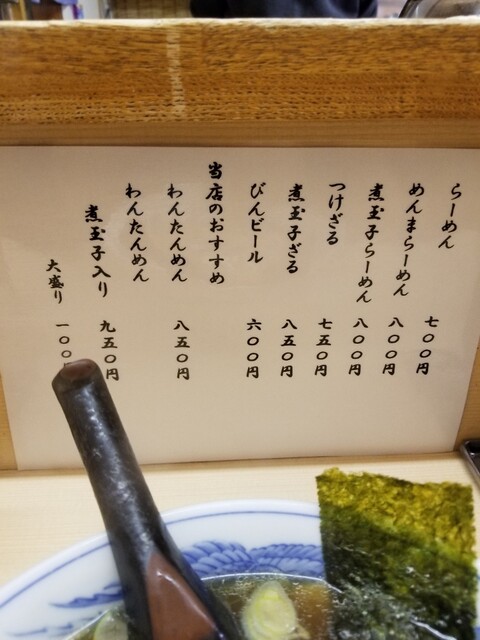 らーめん 七〇〇円
めんまらーめん 八〇〇円
煮玉子らーめん 八〇〇円
つけざる 七五〇円
煮玉子ざる 八五〇円
びんビール 六〇〇円
当店のおすすめ
わんたんめん 八五〇円
わんたんめん
煮玉子入り 九五〇円
大盛り 一〇〇